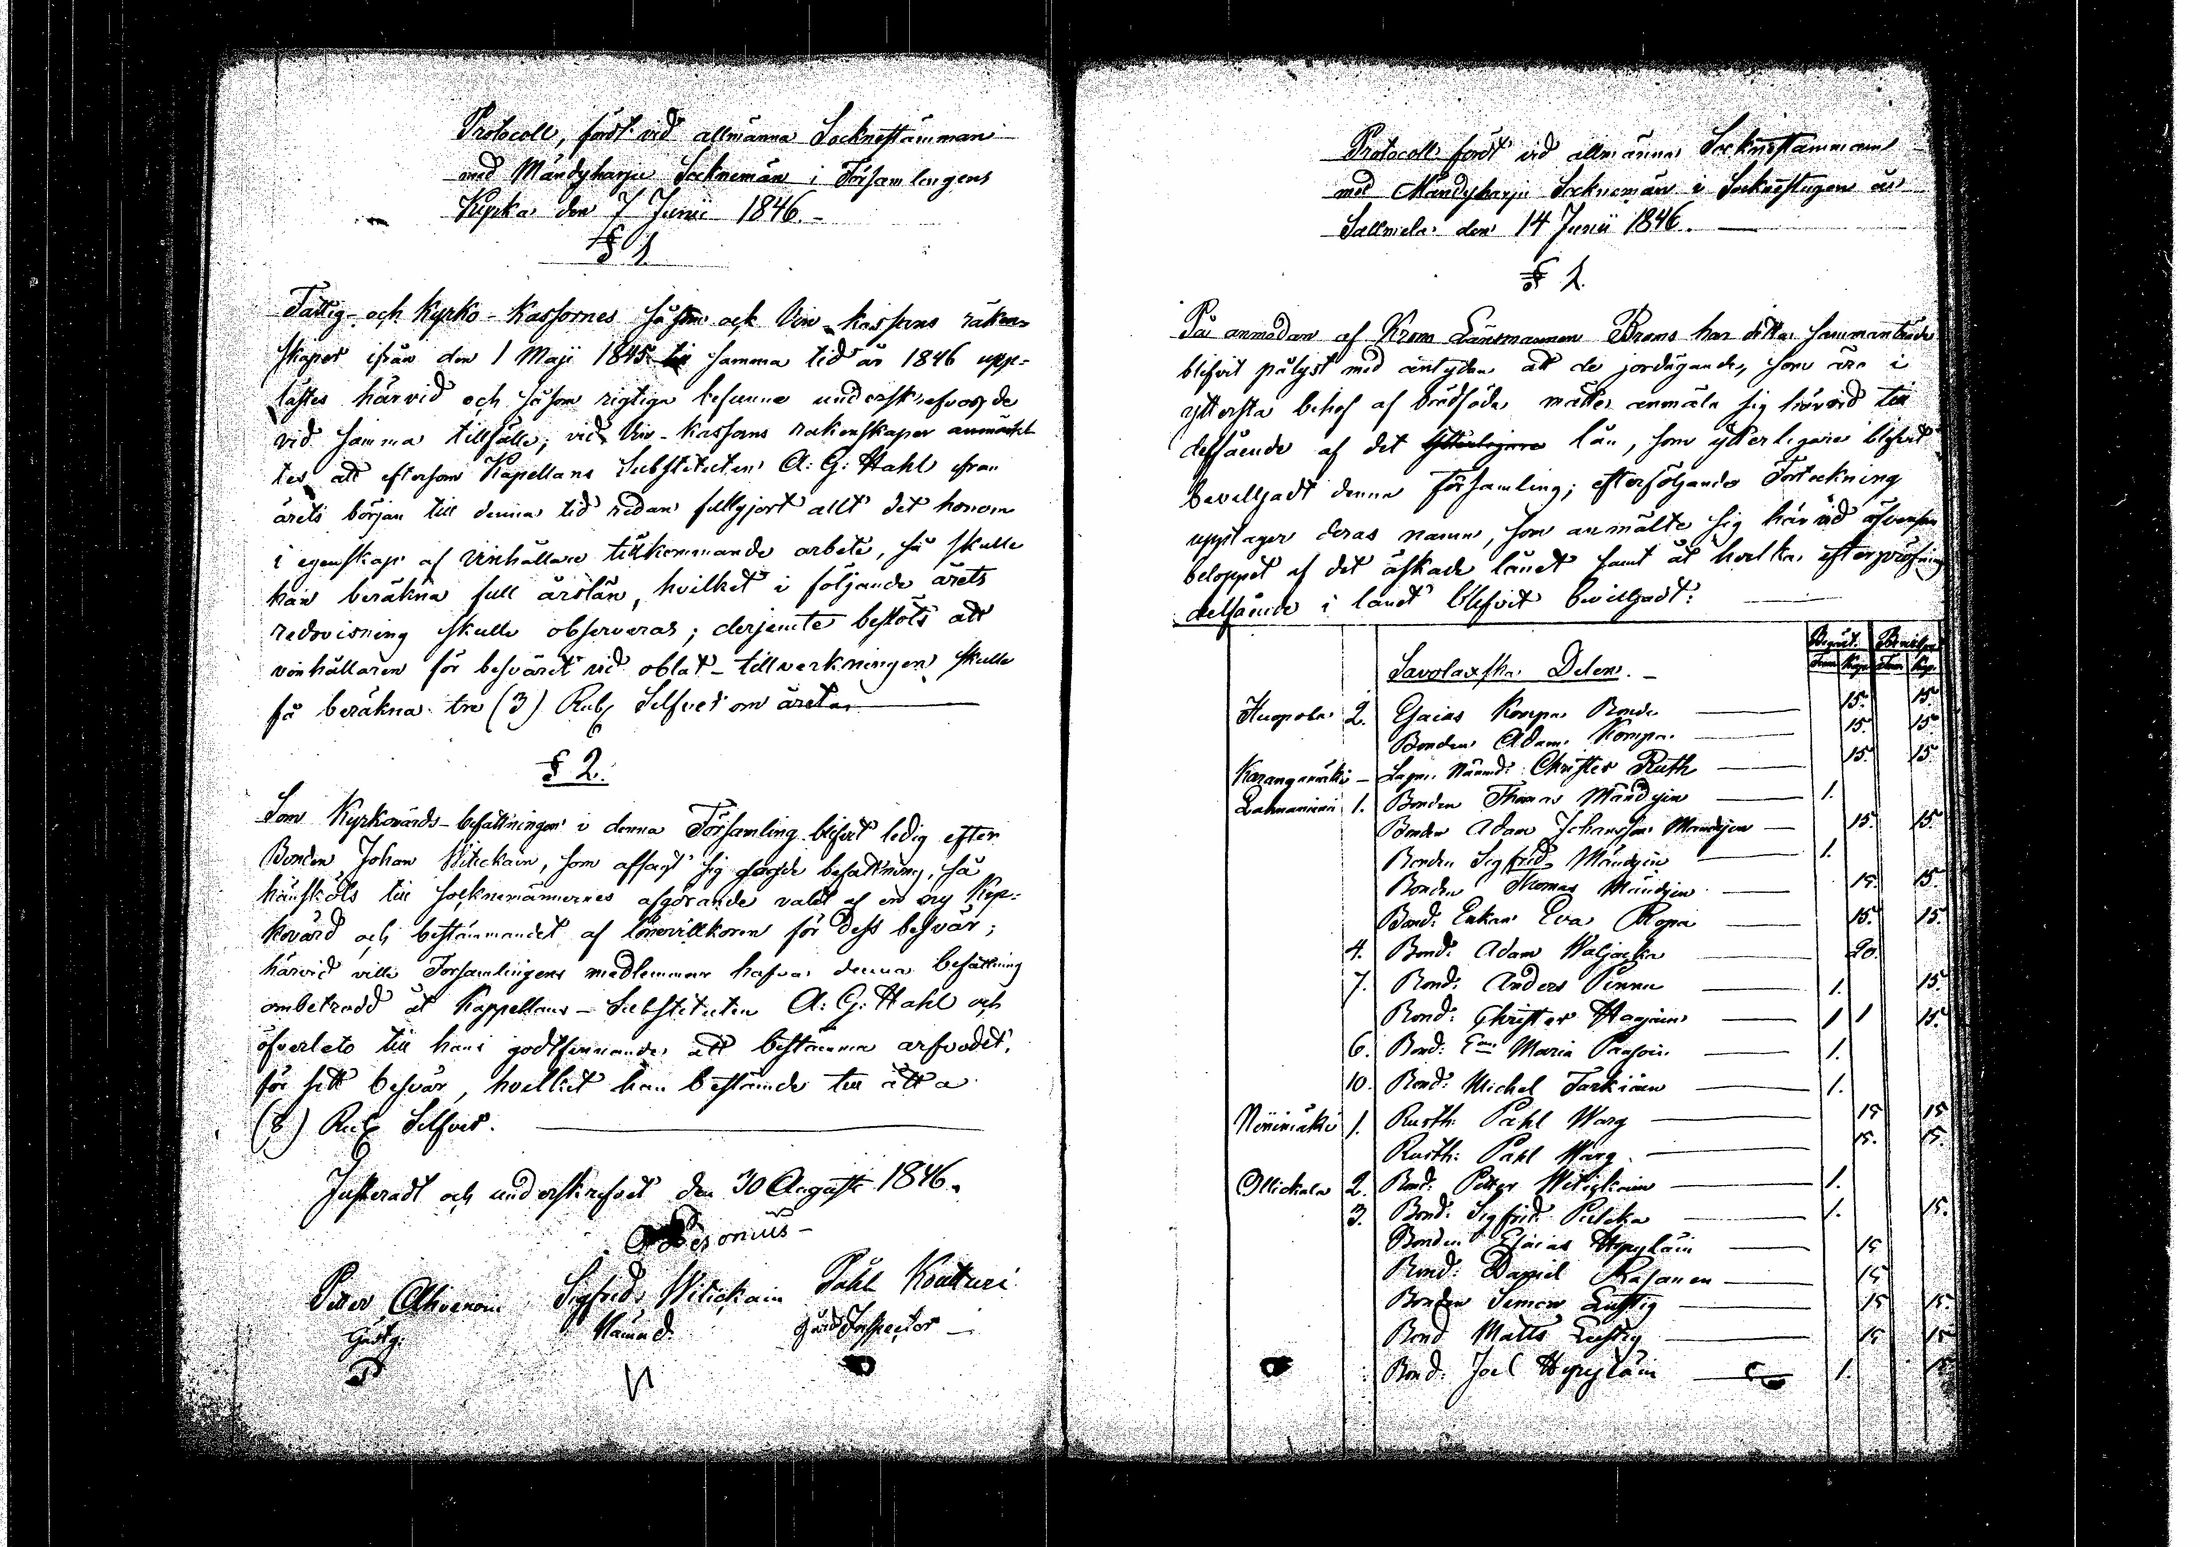 Protocoll, fördt vid allmänna Socknestämman
med Mändyharju Socknemän i Församlingens
Kyrka den 7 Junii 1846.-
§ 1.
Fattig- och Kyrko-Kassornes såsom ock Vin-kassans räken-
skaper ifrån den 1 Maji 1845 till samma tid år 1846 upp-
lästes härvid och såsom rigtiga befunna underskrefvos de
vid samma tillfälle; vid Vin-Kassans räkenskaper anmärk-
tes att eftersom Kapellans Substituten A: G: Hahl från
årets början till denna tid redan fullgjort allt det honom
i egenskap af Vinhållare tillkommande arbete, så skulle
han beräkna full årslön, hvilket i följande årets
redovisning skulle observeras; derjemte beslöts att
vinhållaren för besväret vid oblat-tillverkningen skulle
få beräkna tre (3) Rub Silfver om året.
§ 2.
Som Kyrkovärds-befattningen i denna Församling blifvit ledig efter
Bonden Johan Witickain, som afsagt sig sagde befattning, så
hänsköts till Socknemännernes afgörande valet af en ny Kyr-
kovärd och bestämmandet af lönevillkoren för dess besvär;
härvid ville Församlingens medlemmar hafva denna befattning
ombetrodd åt Kappellans-Substituten A: G: Hahl och
öfverleto till hans godtfinnande att bestämma arfvodet,
för sitt besvär, hvilket han bestämde till åtta
(8) Rub Silfver.
Justeradt och underskrifvet den 30 Augusti 1846.
Petter Ahvenain Sigfrid Witickain Påhl Koutturi
Gästg. Nämnd.
Protocoll fördt vid allmänna Socknestämman
med Mändyharju Socknemän i Socknestugan å
Sallmela den 14 Junii 1846.
§ 1.
På anmodan af Krono Länsmannen Broms har detta sammanträde
blifvit pålyst med antydan att de jordägande, som äro i
yttersta behof af brödföda måtte anmäla sig härvid till
delfående af det ytterligare lån, som ytterligare blifvit
bevilljadt denna Församling; efterföljande Förteckning
upptager deras namn, som anmälte sig härvid äfvensom
beloppet af det äskade lånet samt åt hvilka efter pröfning
delfående i lånet blifvit bevilljadt:
Savolaxska Delen.-
Kuopola 2. Esaias Kompa Bonde 15. 15.
Bonden Adam Kompa 15. 15
Karangamäki - Nämnd: Christer Ruth 15. 15
Lahnaniemi 1. Bonden Thomas Mändyin 1.
Bonden Adam Johansson Mändyin 15. 15.
Bonden Sigfrid Mändyin 1.
Bonden Thomas Mändyin 15. 15.
Bond: Enkan Eva Ropa 15. 15.
4. Bond: Adam Waljacka 20.
7. Bond: Anders Pinnu 1. 15.
Bond: Christer Hagain 1 1 15.
6. Bond: Maria Pausoin 1.
10. Bond: Michel Tarkiain 1.
Niinimäki 1. Rusth: Påhl Warg 15 15
Rusth: Påhl Warg. 15. 15.
Ollickala 2. Bond: Petter Witickain 1.
3. Bond: Sigfrid Pulcka 1. 15.
Bonden Esaias Hyyryläin 15
Bond: Daniel Rasanen 15
Bonden Simon Lustig 15 15.
Bond Matts Lustig 15 15
Bond: Joel Hyyryläin 1. 15